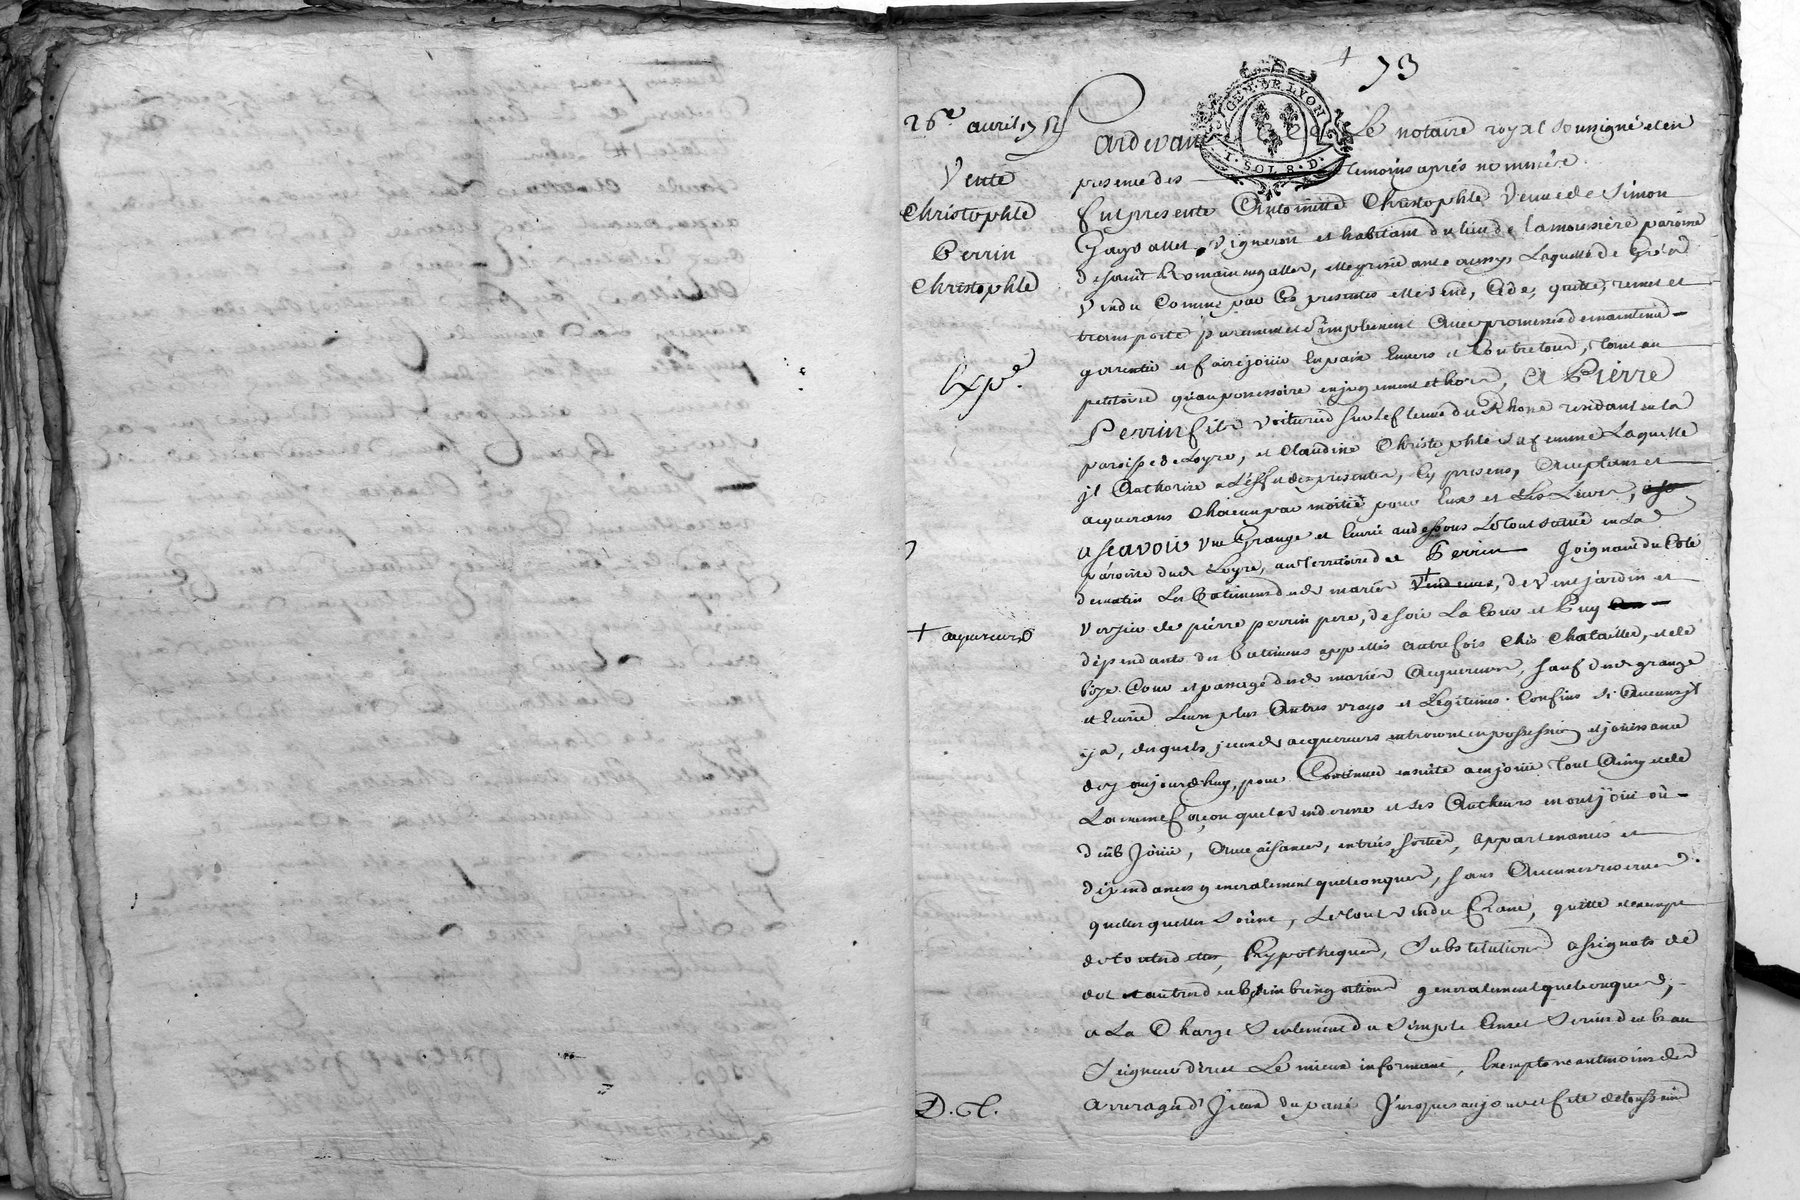 73
GEN. DE LYON
1. SOL 8. D.
26e avril 175
Vente
Christophle
Perrin
Christophle
Exp.é
+ acquereurs
D. Cl.
Pardevant Le notaire royal soussigné et en
presence des temoins aprés nommés.
fut presente Antoinette Christophle Veuve de Simon
vigneron et habitant du lieu de lamoussiere paroisse
de saint Romain engallet, Laquelle de Gré a
Vendu Comme par Ces presentes elle vend, Cede, quitte, remet et
transporte purement et simplement Avec promesse de maintenir
garentir et faire jouir En paix Envers et Contre tous, tant au
petitoire qu'au possessoire en jugement et hors, A Pierre
Perrin fils voiturier sur le fleuve du Rhone residant en la
paroisse de Loyre, et Claudine Christophle sa femme Laquelle
jl Authorise a L'effet des presentes, Cy presens, Acceptans et
acquerans Chacun par moitié pour Eux et Les Leurs,
a scavoir Une Grange et Ecurie au dessous Le tout situé en La
paroisse dud. Loyre, au Territoire de Perrin Joignant du Coté
de matin Les Batimens desd. mariés Vendeurs, de Vent jardin et
Verger de pierre perrin pere, de soir La Cour et Puy
dépendants des batimens appellés autrefois Chés Chatailler, et de
bize Cour et passage desd. mariés Acquereurs, sauf desd. grange
et Ecurie Leurs plus Autres vrays et Légitimes Confins si Aucuns jl
y a, desquels jceux acquereurs entreront en possession et jouissance
dez aujourd'huy, pour Continuer ensuite a en jouir Tout Ainsy et de
La meme façon que la venderesse et ses Autheurs en ont joui où
deüb Joüir, Avec aisances, entrées, sorties, appartenances et
dependances generalement quelconques, sans Aucunes reserves
quelles quelles soient, Le tout vendu franc, quitte et exempt
de toutes dettes, hypotheques, Substitutions assignats de
dot et autres generalement quelconques,
a La Charge seulement du simple Cens et servis deub au
Seigneur direct Le mieux informant, Exempt neantmoins des
arrerages d'jceux du passé jusques au jour et fete de toussaint